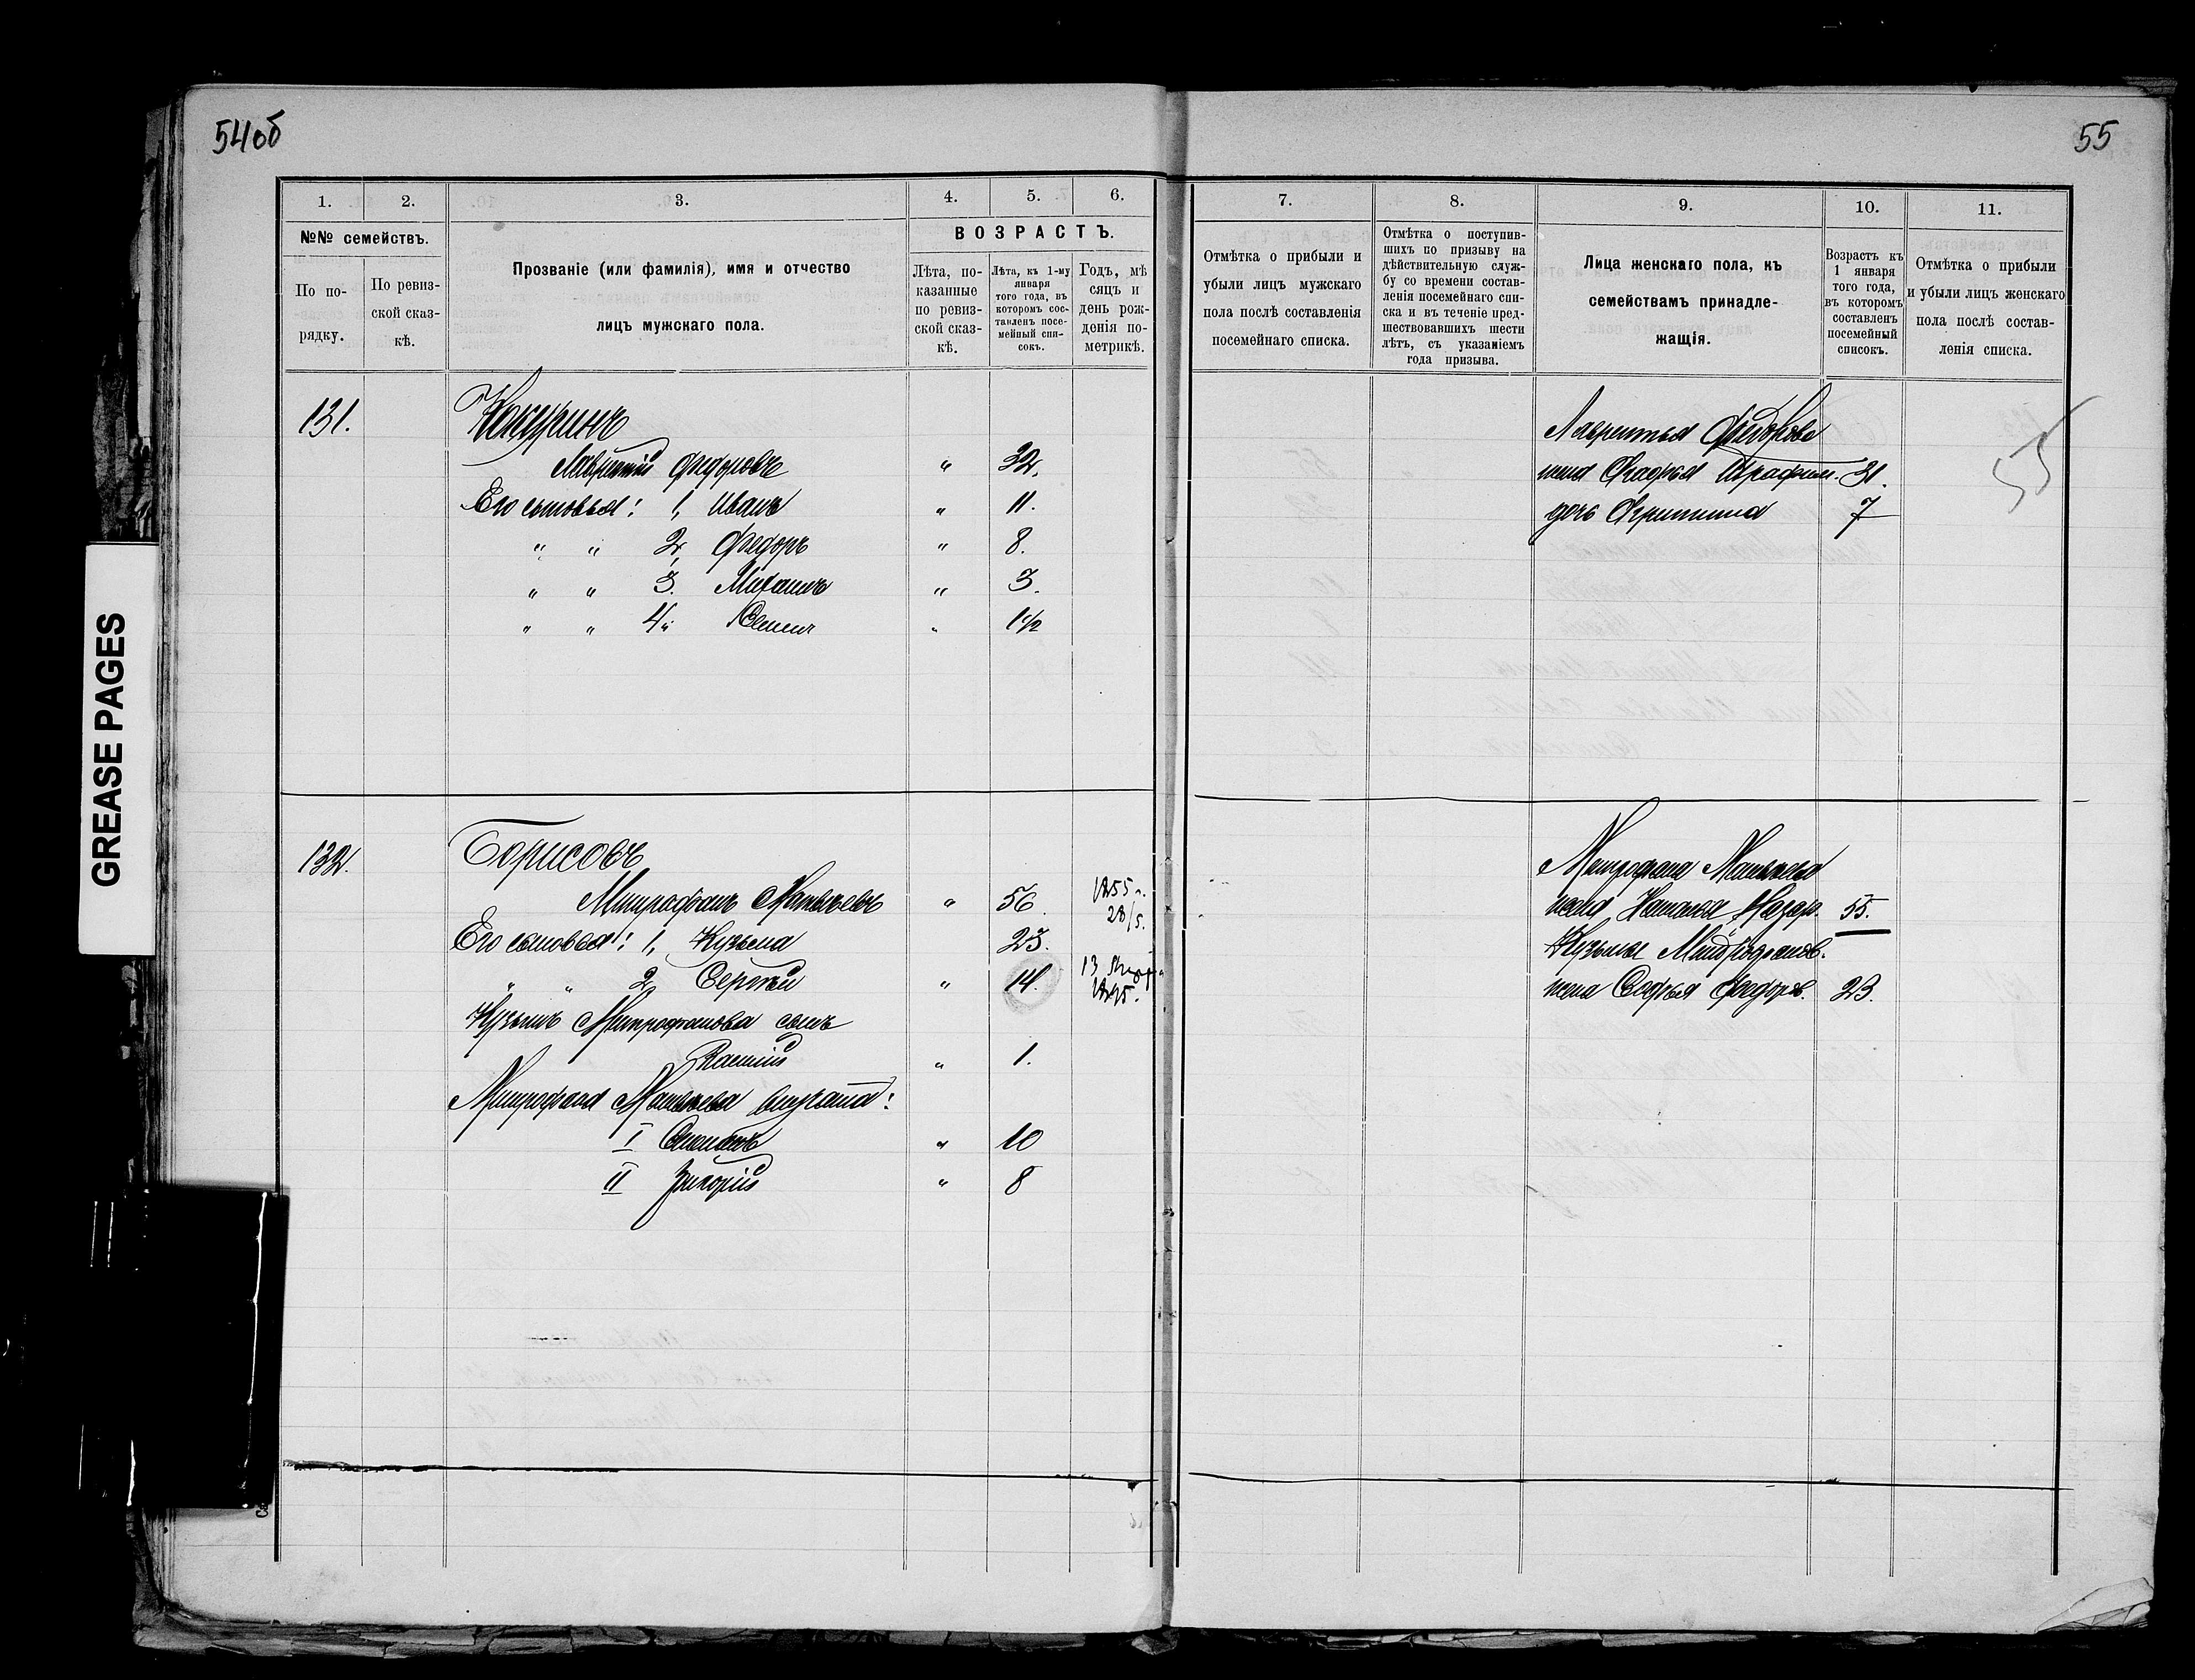 54об
55
1. 2. 3. 4. 5. 6.
№№ семействъ.
По по-
рядку.
По ревиз-
ской сказ-
кѣ.
Прозваніе (или фамилія), имя и отчество
лицъ мужскаго пола.
ВОЗРАСТЪ.
Лѣта, по-
казанные
по ревиз-
ской сказ-
кѣ.
Лѣта, къ 1-му
января
того года, въ
которомъ сос-
тавленъ посе-
мейный спи-
сокъ.
Годъ, мѣ
сяцъ и
день рож-
денія по-
метрикѣ.
131.
Кокуринъ
Лаврентій Федоровъ " 32.
Его сыновья: 1, Иванъ " 11.
" " 2, Федоръ " 8.
" " 3. Михаилъ " 3.
" " 4, " 1 1/2
132.
Борисовъ
Митрофанъ Матвѣевъ " 56. 1855 г.
28/5.
Его сыновья: 1, Кузьма 23.
" " 2, Сергѣй " 14. 13
1895.
Кузьмы Митрофанова сынъ
" 1.
Митрофана Матвѣева внучата:
I Степанъ " 10
II Григорій " 8
7. 8. 9. 10. 11.
Отмѣтка о прибыли и
убыли лицъ мужскаго
пола послѣ составленія
посемейнаго списка.
Отмѣтка о поступив-
шихъ по призыву на
дѣйствительную служ-
бу со времени состав-
ленія посемейнаго спи-
ска и въ теченіе пред-
шествовавшихъ шести
лѣтъ, съ указаніемъ
года призыва.
Лица женскаго пола, къ
семействамъ принадле-
жащія.
Возрастъ къ
1 января
того года,
въ которомъ
составленъ
посемейный
списокъ.
Отмѣтка о прибыли
и убыли лицъ женскаго
пола послѣ состав-
ленія списка.
Лаврентья Федорова
жена Агафья 31.
дочь Агриппина 7
55
Митрофана Матвѣева
жена Наталья Назар. 55.
Кузьмы Митрофанов.
жена Софья Федоров. 23.
GREASE PAGES